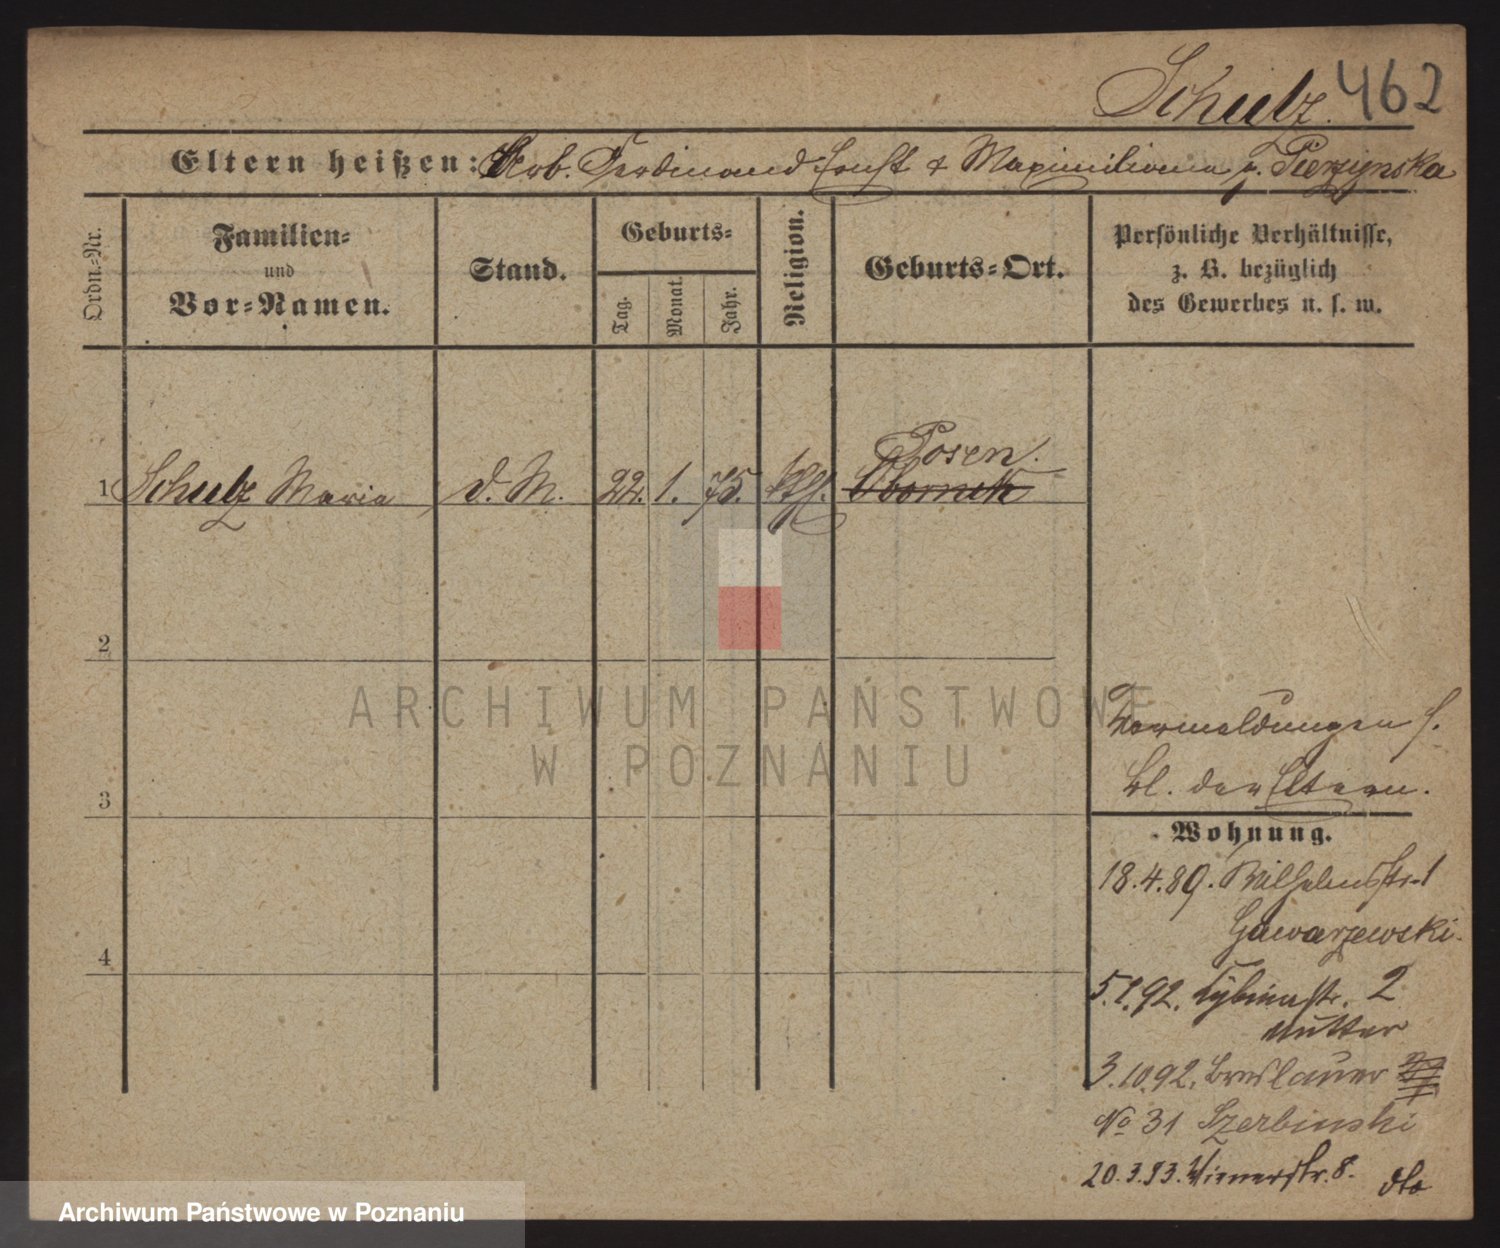 Schulz. 462
Eltern heißen: Arb. Ferdinand Ernst & Maximiliana g. Pierzynska
Ordn.-Nr.
Familien-
und
Vor-Namen.
Stand.
Geburts-
Tag.
Monat.
Jahr.
Religion.
Geburts-Ort.
Persönliche Verhältnisse,
z. B. bezüglich
des Gewerbes u. s. w.
Posen.
1 Schulz Maria d. M. 22. 1. 75. kth. Obornik
2
3
4
Vormeldungen s.
bl. der Eltern.
Wohnung.
18.4.89. Wilhelmstr. 1
Gawarzewski.
5.1.92. Cybinastr. 2
Mutter
3.10.92. Breslauer
No 31 Szerbinski
20.3.93. Wienerstr. 8. dto
ARCHIWUM PAŃSTWOWE
W POZNANIU
Archiwum Państwowe w Poznaniu